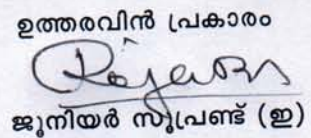 ഉത്തരവിൻ പ്രകാരം
ജൂനിയർ സൂപ്രണ്ട് (ഇ)